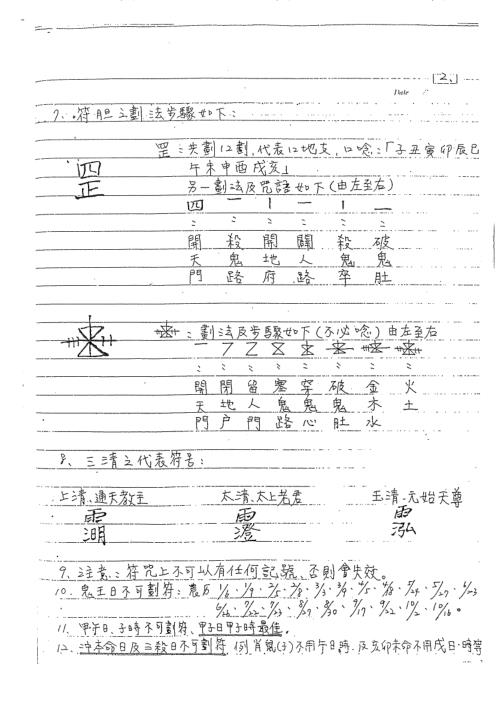 2.
Date
7. 符胆之劃法步驟如下：
罡：共劃12劃，代表12地支，口唸：「子丑寅卯辰巳
午未申酉戌亥」
四
正
另一劃法及咒語如下（由左至右）
四 一 丨 一 丨 一
開 殺 開 關 殺 破
天 鬼 地 人 鬼 鬼
門 路 府 路 卒 肚
：劃法及步驟如下（不必唸）由左至右
開 閉 留 塞 穿 破 金 火
天 地 人 鬼 鬼 鬼 木 土
門 户 門 路 心 肚 水
8、三清之代表符号：
上清、通天教主 太清、太上老君 玉清、元始天尊
9、注意：符咒上不可以有任何記號、否則會失效。
10、鬼王日不可劃符：農历 1/6、1/9、2/5、2/8、3/3、3/9、4/5、4/8、5/4、5/27、6/23
6/26、7/22、7/23、8/27、8/30、9/17、9/22、10/2、10/16。
11、甲午日、子時不可劃符、甲子日甲子時最佳。
12、沖本命日及三殺日不可劃符 例 肖鼠(子)不用午日時 及亥卯未命不用戌日、時等